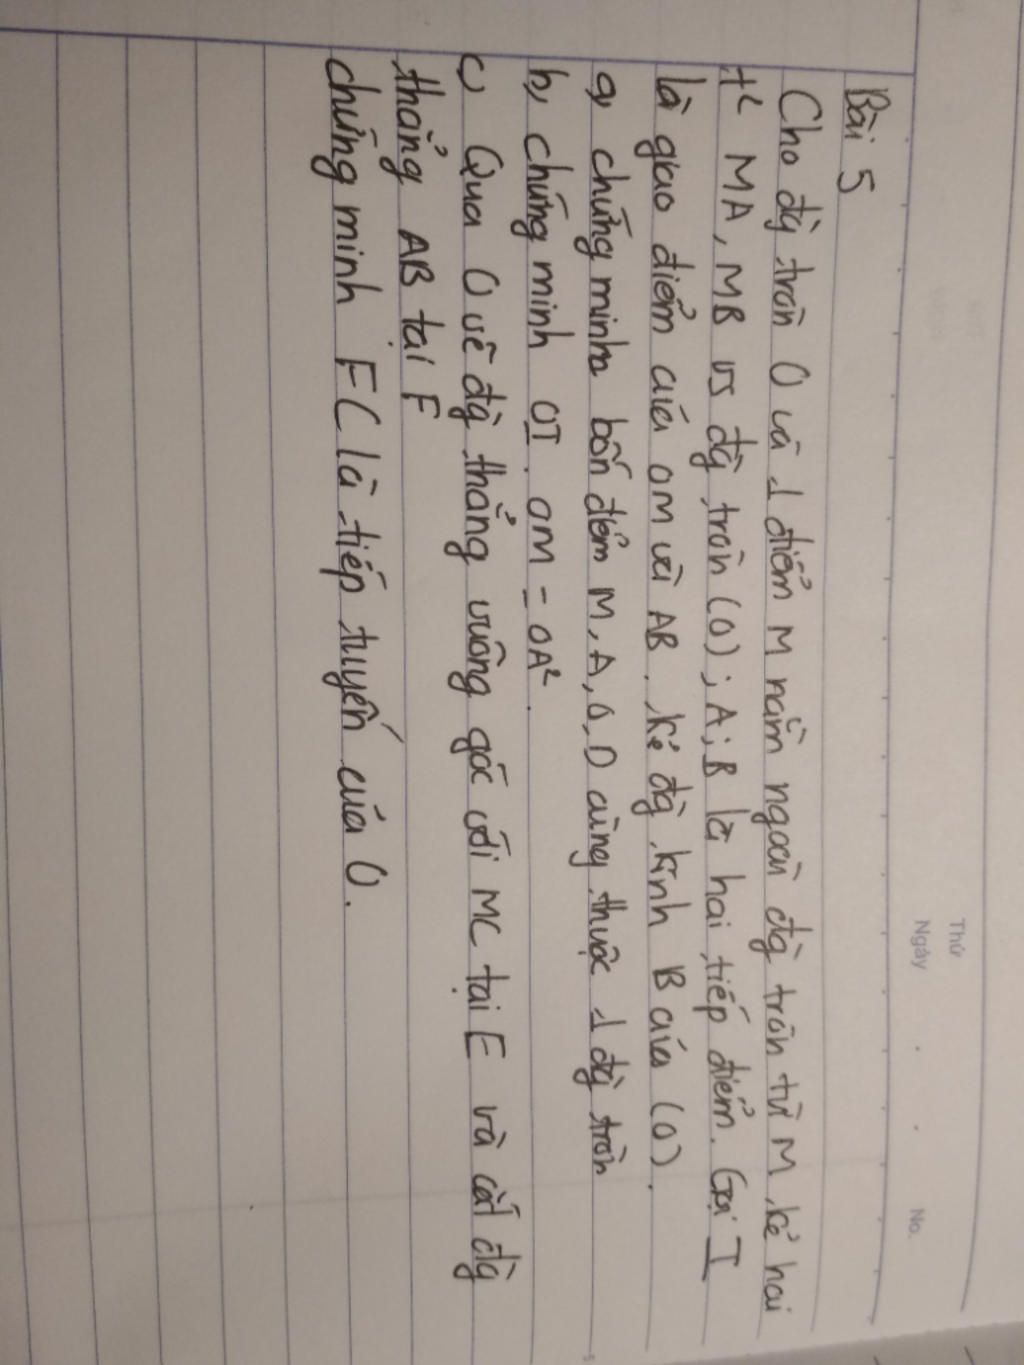 Thứ
Ngày
No.
Bài 5
Cho đg tròn O và 1 điểm M nằm ngoài đg tròn từ M kẻ hai
t² MA, MB vs đg tròn (O); A; B là hai tiếp điểm. Gọi I
là giao điểm của OM và AB. kẻ đg kính B của (O).
a, chứng minh bốn điểm M, A, O, D cùng thuộc 1 đg tròn
b, chứng minh OI. OM = OA².
c, Qua O vẽ đg thẳng vuông góc với MC tại E và cắt đg
thẳng AB tại F
chứng minh FC là tiếp tuyến của O.